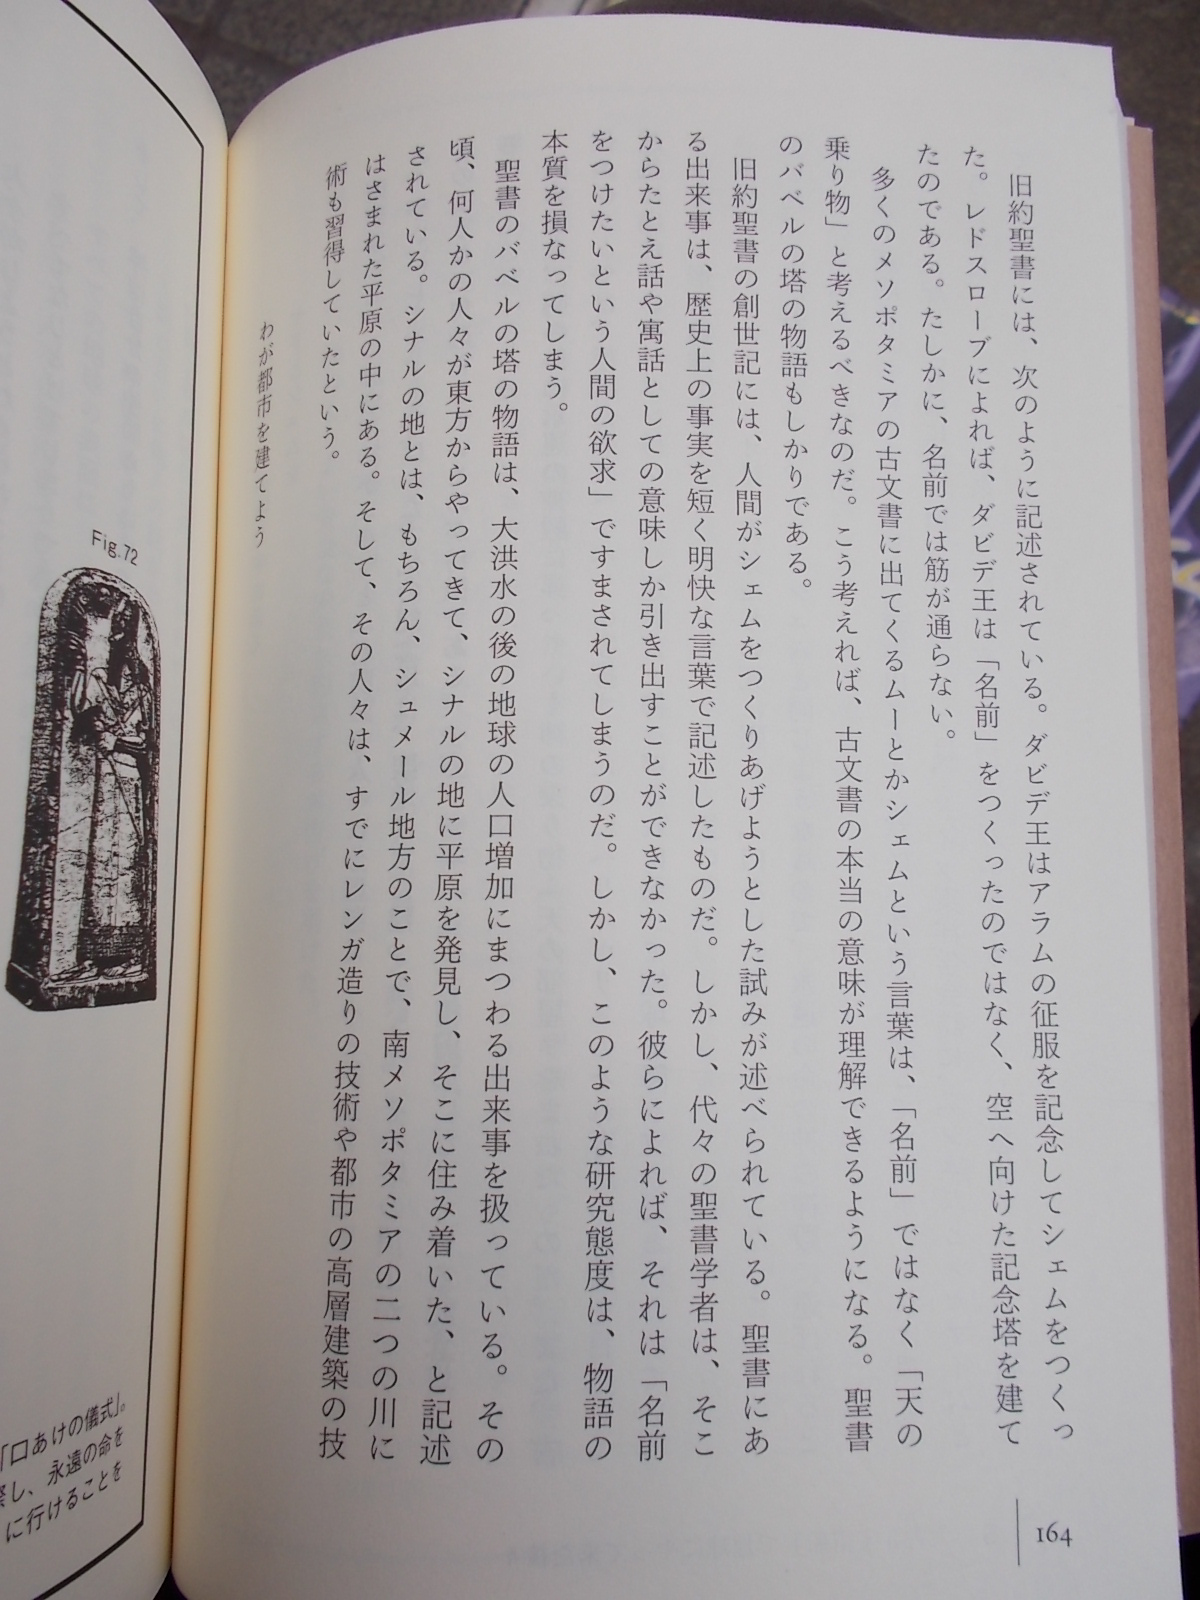 旧約聖書には、次のように記述されている。ダビデ王はアラムの征服を記念してシェムをつくっ
た。レドスローブによれば、ダビデ王は「名前」をつくったのではなく、空へ向けた記念塔を建て
たのである。たしかに、名前では筋が通らない。
多くのメソポタミアの古文書に出てくるムーとかシェムという言葉は、「名前」ではなく「天の
乗り物」と考えるべきなのだ。こう考えれば、古文書の本当の意味が理解できるようになる。聖書
のバベルの塔の物語もしかりである。
旧約聖書の創世記には、人間がシェムをつくりあげようとした試みが述べられている。聖書にあ
る出来事は、歴史上の事実を短く明快な言葉で記述したものだ。しかし、代々の聖書学者は、そこ
からたとえ話や寓話としての意味しか引き出すことができなかった。彼らによれば、それは「名前
をつけたいという人間の欲求」ですまされてしまうのだ。しかし、このような研究態度は、物語の
本質を損なってしまう。
聖書のバベルの塔の物語は、大洪水の後の地球の人口増加にまつわる出来事を扱っている。その
頃、何人かの人々が東方からやってきて、シナルの地に平原を発見し、そこに住み着いた、と記述
されている。シナルの地とは、もちろん、シュメール地方のことで、南メソポタミアの二つの川に
はさまれた平原の中にある。そして、その人々は、すでにレンガ造りの技術や都市の高層建築の技
術も習得していたという。
わが都市を建てよう
164
Fig.72
「口あけの儀式」。
し、永遠の命を
に行けることを